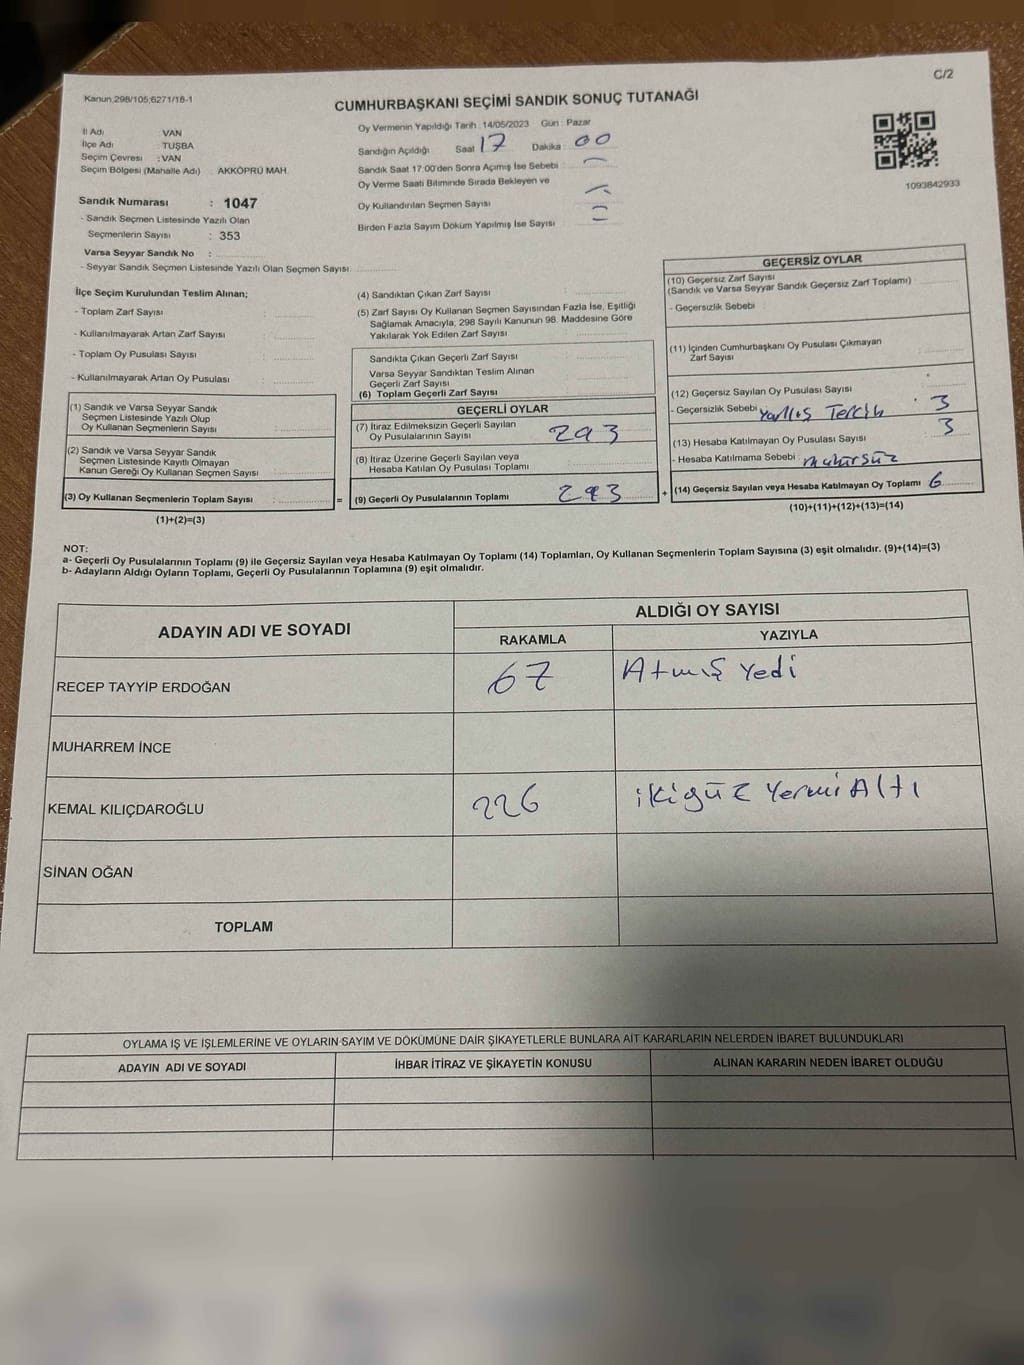 C/2
Kanun;298/105;6271/18-1
CUMHURBAŞKANI SEÇİMİ SANDIK SONUÇ TUTANAĞI
İl Adı VAN
İlçe Adı : TUŞBA
Seçim Çevresi : VAN
Seçim Bölgesi (Mahalle Adı) : AKKÖPRÜ MAH.
Oy Vermenin Yapıldığı Tarih : 14/05/2023 Gün : Pazar
Sandığın Açıldığı Saat 17 Dakika : 00
Sandık Saat 17:00'den Sonra Açımış İse Sebebi :
Oy Verme Saati Bitiminde Sırada Bekleyen ve
Oy Kullandırılan Seçmen Sayısı
Birden Fazla Sayım Döküm Yapılmış İse Sayısı
1093842933
Sandık Numarası : 1047
- Sandık Seçmen Listesinde Yazılı Olan
Seçmenlerin Sayısı : 353
Varsa Seyyar Sandık No :
- Seyyar Sandık Seçmen Listesinde Yazılı Olan Seçmen Sayısı:
İlçe Seçim Kurulundan Teslim Alınan;
- Toplam Zarf Sayısı :
- Kullanılmayarak Artan Zarf Sayısı :
- Toplam Oy Pusulası Sayısı :
- Kullanılmayarak Artan Oy Pusulası :
(1) Sandık ve Varsa Seyyar Sandık
Seçmen Listesinde Yazılı Olup
Oy Kullanan Seçmenlerin Sayısı :
(2) Sandık ve Varsa Seyyar Sandık
Seçmen Listesinde Kayıtlı Olmayan
Kanun Gereği Oy Kullanan Seçmen Sayısı :
(3) Oy Kullanan Seçmenlerin Toplam Sayısı :
(1)+(2)=(3)
=
(4) Sandıktan Çıkan Zarf Sayısı :
(5) Zarf Sayısı Oy Kullanan Seçmen Sayısından Fazla İse, Eşitliği
Sağlamak Amacıyla, 298 Sayılı Kanunun 98. Maddesine Göre
Yakılarak Yok Edilen Zarf Sayısı :
Sandıkta Çıkan Geçerli Zarf Sayısı :
Varsa Seyyar Sandıktan Teslim Alınan
Geçerli Zarf Sayısı
(6) Toplam Geçerli Zarf Sayısı
GEÇERLİ OYLAR
(7) İtiraz Edilmeksizin Geçerli Sayılan
Oy Pusulalarının Sayısı 293
(8) İtiraz Üzerine Geçerli Sayılan veya
Hesaba Katılan Oy Pusulası Toplamı
(9) Geçerli Oy Pusulalarının Toplamı 293
+
GEÇERSİZ OYLAR
(10) Geçersiz Zarf Sayısı
(Sandık ve Varsa Seyyar Sandık Geçersiz Zarf Toplamı) :
- Geçersizlik Sebebi :
(11) İçinden Cumhurbaşkanı Oy Pusulası Çıkmayan
Zarf Sayısı :
(12) Geçersiz Sayılan Oy Pusulası Sayısı : 3
- Geçersizlik Sebebi Yanlış Tercih
(13) Hesaba Katılmayan Oy Pusulası Sayısı : 3
- Hesaba Katılmama Sebebi : mühürsüz
(14) Geçersiz Sayılan veya Hesaba Katılmayan Oy Toplamı 6
(10)+(11)+(12)+(13)=(14)
NOT:
a- Geçerli Oy Pusulalarının Toplamı (9) ile Geçersiz Sayılan veya Hesaba Katılmayan Oy Toplamı (14) Toplamları, Oy Kullanan Seçmenlerin Toplam Sayısına (3) eşit olmalıdır. (9)+(14)=(3)
b- Adayların Aldığı Oyların Toplamı, Geçerli Oy Pusulalarının Toplamına (9) eşit olmalıdır.
ADAYIN ADI VE SOYADI
ALDIĞI OY SAYISI
RAKAMLA YAZIYLA
RECEP TAYYİP ERDOĞAN 67 Atmış Yedi
MUHARREM İNCE
KEMAL KILIÇDAROĞLU 226 ikiyüz Yermi Altı
SİNAN OĞAN
TOPLAM
OYLAMA İŞ VE İŞLEMLERİNE VE OYLARIN SAYIM VE DÖKÜMÜNE DAİR ŞİKAYETLERLE BUNLARA AİT KARARLARIN NELERDEN İBARET BULUNDUKLARI
ADAYIN ADI VE SOYADI İHBAR İTİRAZ VE ŞİKAYETİN KONUSU ALINAN KARARIN NEDEN İBARET OLDUĞU